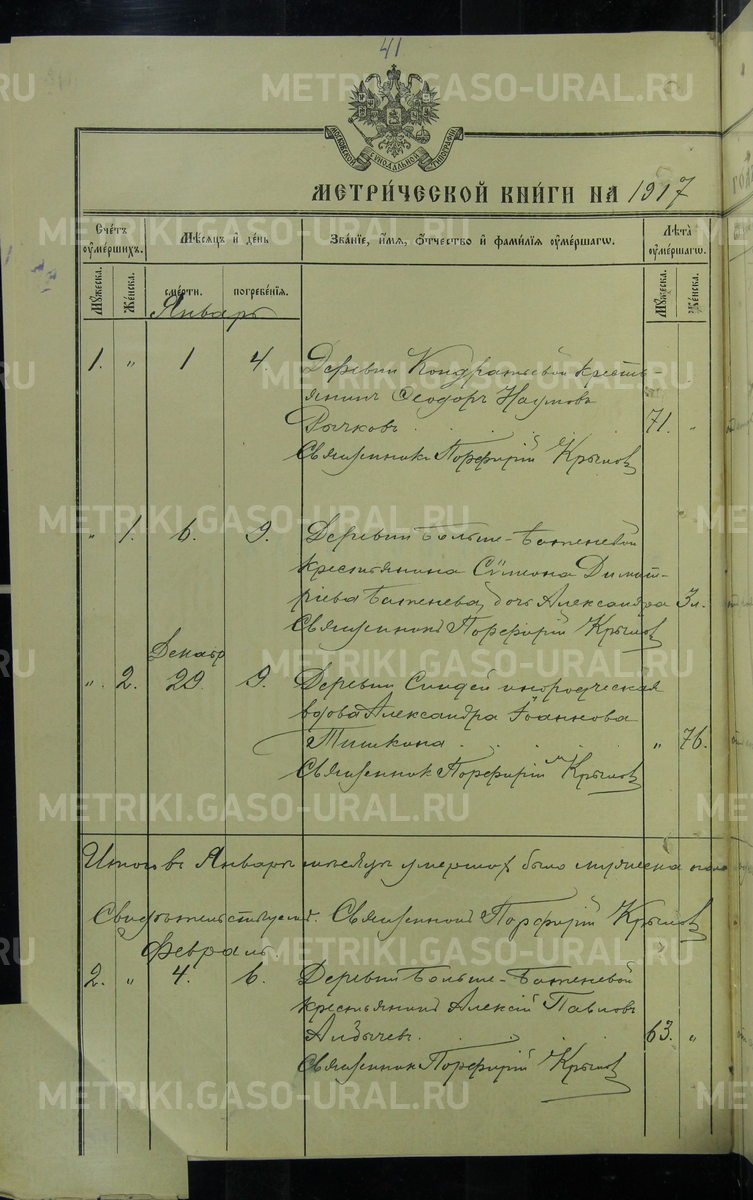 41
МОСКОВСКОЙ СѴНОДАЛЬНОЙ ТИПОГРАФІИ
МЕТРИ́ЧЕСКОЙ КНИ́ГИ НА 1917
Счетъ ѹмершихъ. Мѣсяцъ и день Званіе, имя, отчество и фамилія ѹмершагѡ. Лѣта ѹмершагѡ.
Мужеска. Женска. смерти. погребенія. Мужеска. Женска.
Январь
1. " 1 4. Деревни Кондратьевой кресть-
янинъ Ѳеодоръ Наумовъ
Рычковъ . . . 71. "
Священникъ Порфирій Крыловъ
" 1. 6. 9. Деревни Больше-Баженевой
крестьянина Сѵмеона Димит-
ріева Баженева, дочь Александра 3 л.
Священникъ Порфирій Крыловъ
Декабр
". 2. 29. 9. Деревни инородческая
вдова Александра Іоаннова
Тишкина . . . . " 76.
Священникъ Порфирій Крыловъ
Итого въ Январѣ мѣсяцѣ умершихъ было мужеска пола
Свидѣтельствуемъ. Священникъ Порфирій Крыловъ
Февраль.
2. " 4. 6. Деревни Больше-Баженевой
крестьянинъ Алексій Павловъ
. . . 63. "
Священникъ Порфирій Крыловъ
METRIKI.GASO-URAL.RU